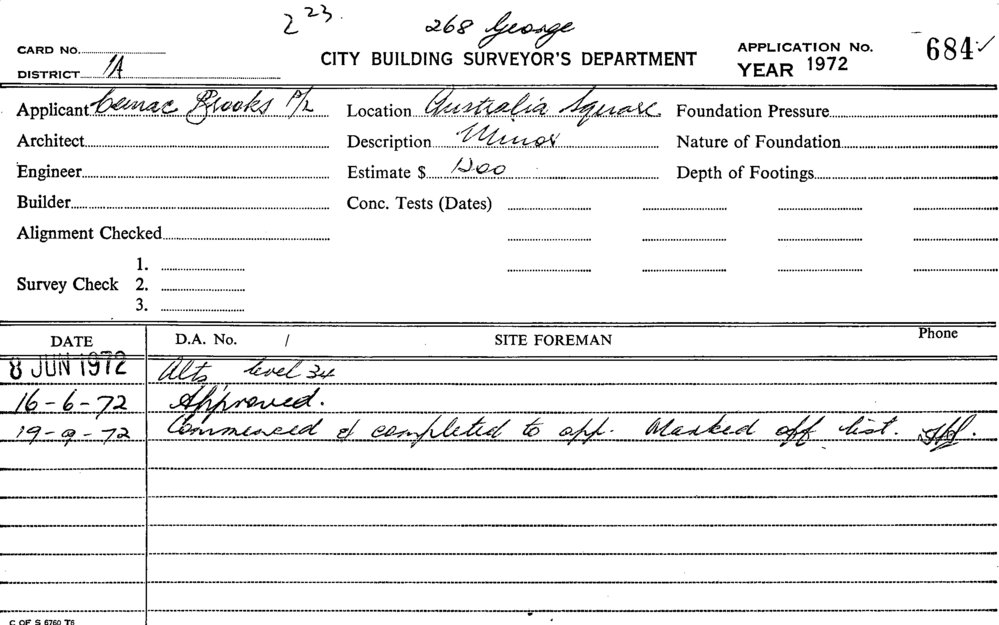 223. 268 George
CARD No. CITY BUILDING SURVEYOR'S DEPARTMENT APPLICATION No. 684
DISTRICT 1A YEAR 1972
Applicant Cemac Brooks P/L Location Australia Square Foundation Pressure
Architect Description Minor Nature of Foundation
Engineer Estimate $ 1200 Depth of Footings
Builder Conc. Tests (Dates)
Alignment Checked
1.
Survey Check 2.
3.
DATE D.A. No. / SITE FOREMAN Phone
8 JUN 1972 Alts level 34
16-6-72 Approved.
19-9-72 Commenced & completed to app. Marked off list.
C OF S 6760 T6